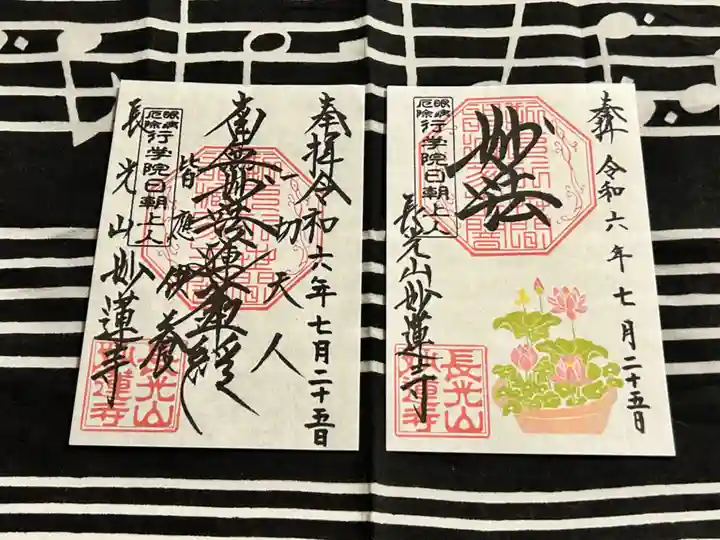 奉拝 令和六年七月二十五日
一切天人
南無妙法蓮華経
皆應供養
眼病厄除
行学院日朝上人
長光山妙蓮寺
長光山妙蓮寺
奉拝 令和六年七月二十五日
妙法
眼病厄除
行学院日朝上人
長光山妙蓮寺
長光山妙蓮寺